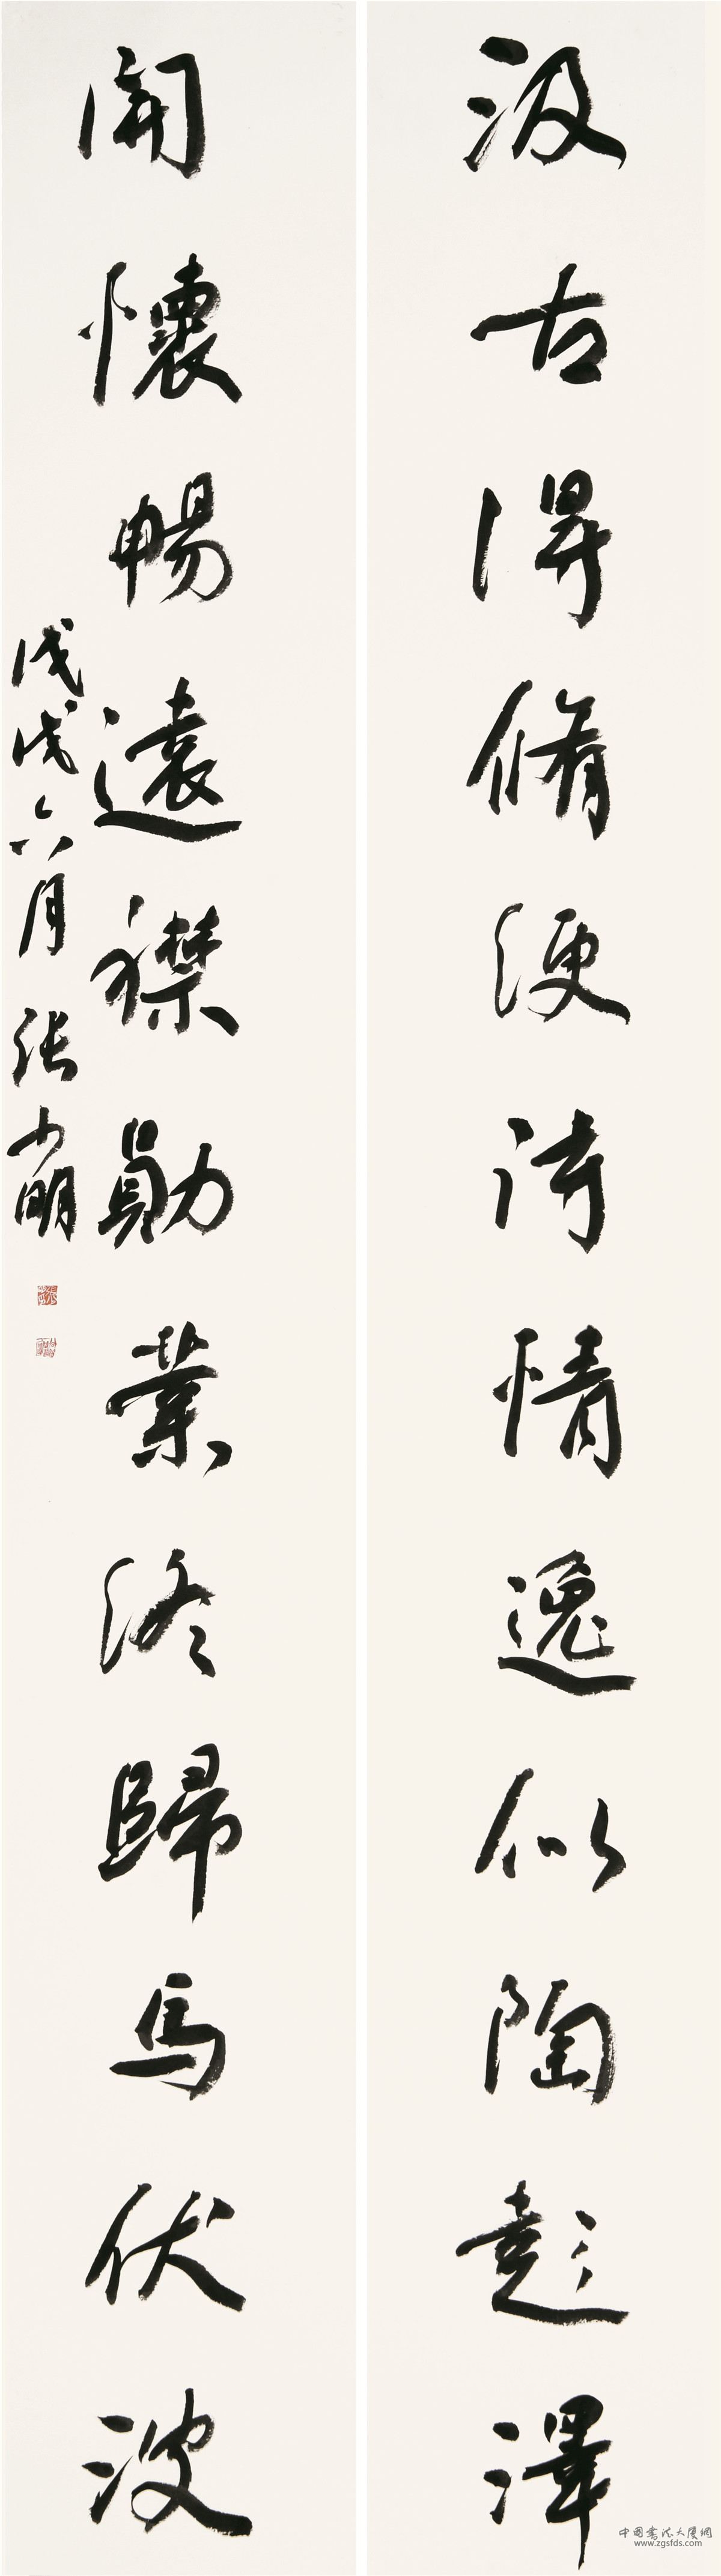 汲古得脩綆詩情逸似陶彭澤
開懷暢遠襟勛業終歸馬伏波
戊戌六月張少明
中国书法大厦网
www.zgsfds.com